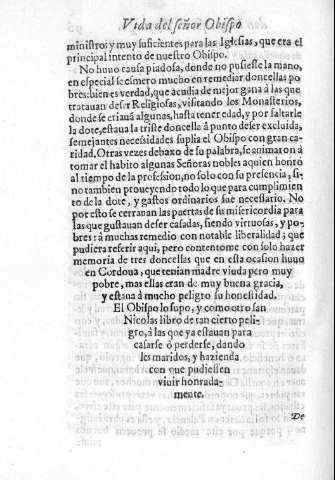 Vida del señor Obispo
ministros y muy suficientes para las Iglesias, que era el
principal intento de nuestro Obispo.
No huuo causa piadosa, donde no pusiesse la mano,
en especial se esmero mucho en remediar doncellas po
bres: bien es verdad, que acudia de mejor gana â las que
tratauan de ser Religiosas, visitando los Monasterios,
donde se criauã algunas, hasta tener edad, y por faltarle
la dote, estaua la triste doncella â punto de ser excluida,
semejantes necessidades suplia el Obispo con gran ca-
ridad. Otras vezes debaxo de su palabra, se animaron â
tomar el habito algunas Señoras nobles aquien honrò
al tiempo de la profession, no solo con su presencia, si-
no tambien proueyendo todo lo que para cumplimien
to de la dote, y gastos ordinarios fue necessario. No
por esto se cerrauan las puertas de su misericordia para
las que gustauan de ser casadas, siendo virtuosas, y po-
bres: â muchas remedio con notable liberalidad; que
pudiera referir aqui, pero contentome con solo hazer
memoria de tres doncellas que en esta ocasion huuo
en Cordoua, que tenian madre viuda pero muy
pobre, mas ellas eran de muy buena gracia,
y estaua â mucho peligro su honestidad.
El Obispo lo supo, y como otro san
Nicolas libro de tan cierto peli-
gro, à las que ya estauan para
casarse ô perderse, dando
les maridos, y hazienda
con que pudiessen
viuir honrada-
mente.
De